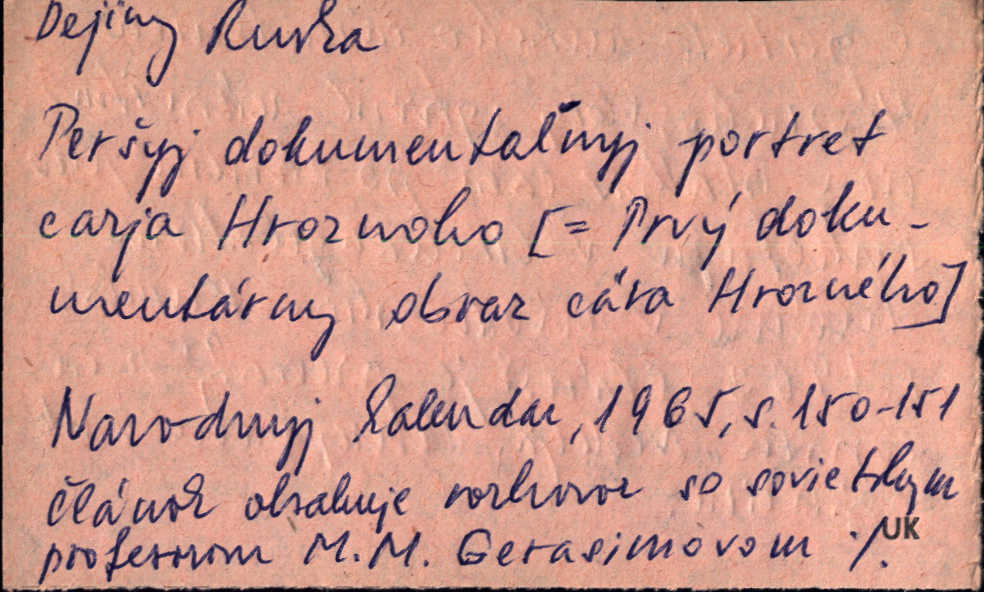 Dejiny Ruska
Peršyj dokumentaľnyj portret
carja Hroznoho [= Prvý doku-
mentárny obraz cára Hrozného]
Narodnyj kalendar, 1965, s. 150-151
článok obsahuje rozhovor so sovietskym
profesorom M. M. Gerasimovom ·/.
UK